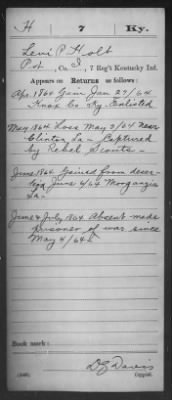 H 7 Ky.
Levi P. Holt
Pvt., Co. I, 7 Reg't Kentucky Inf.
Appears on Returns as follows:
Apr. 1864 Gain Jan 27/64
Knox Co. Ky Enlisted
May 1864 Loss May 3/64 near
Clinton, La - Captured
by Rebel Scouts -
June 1864 Gained from deser-
tion June 6/64 Morganzia
La -
June & July 1864 Absent made
Prisoner of war since
May 4/64
Book mark:
D E Davis
Copyist.